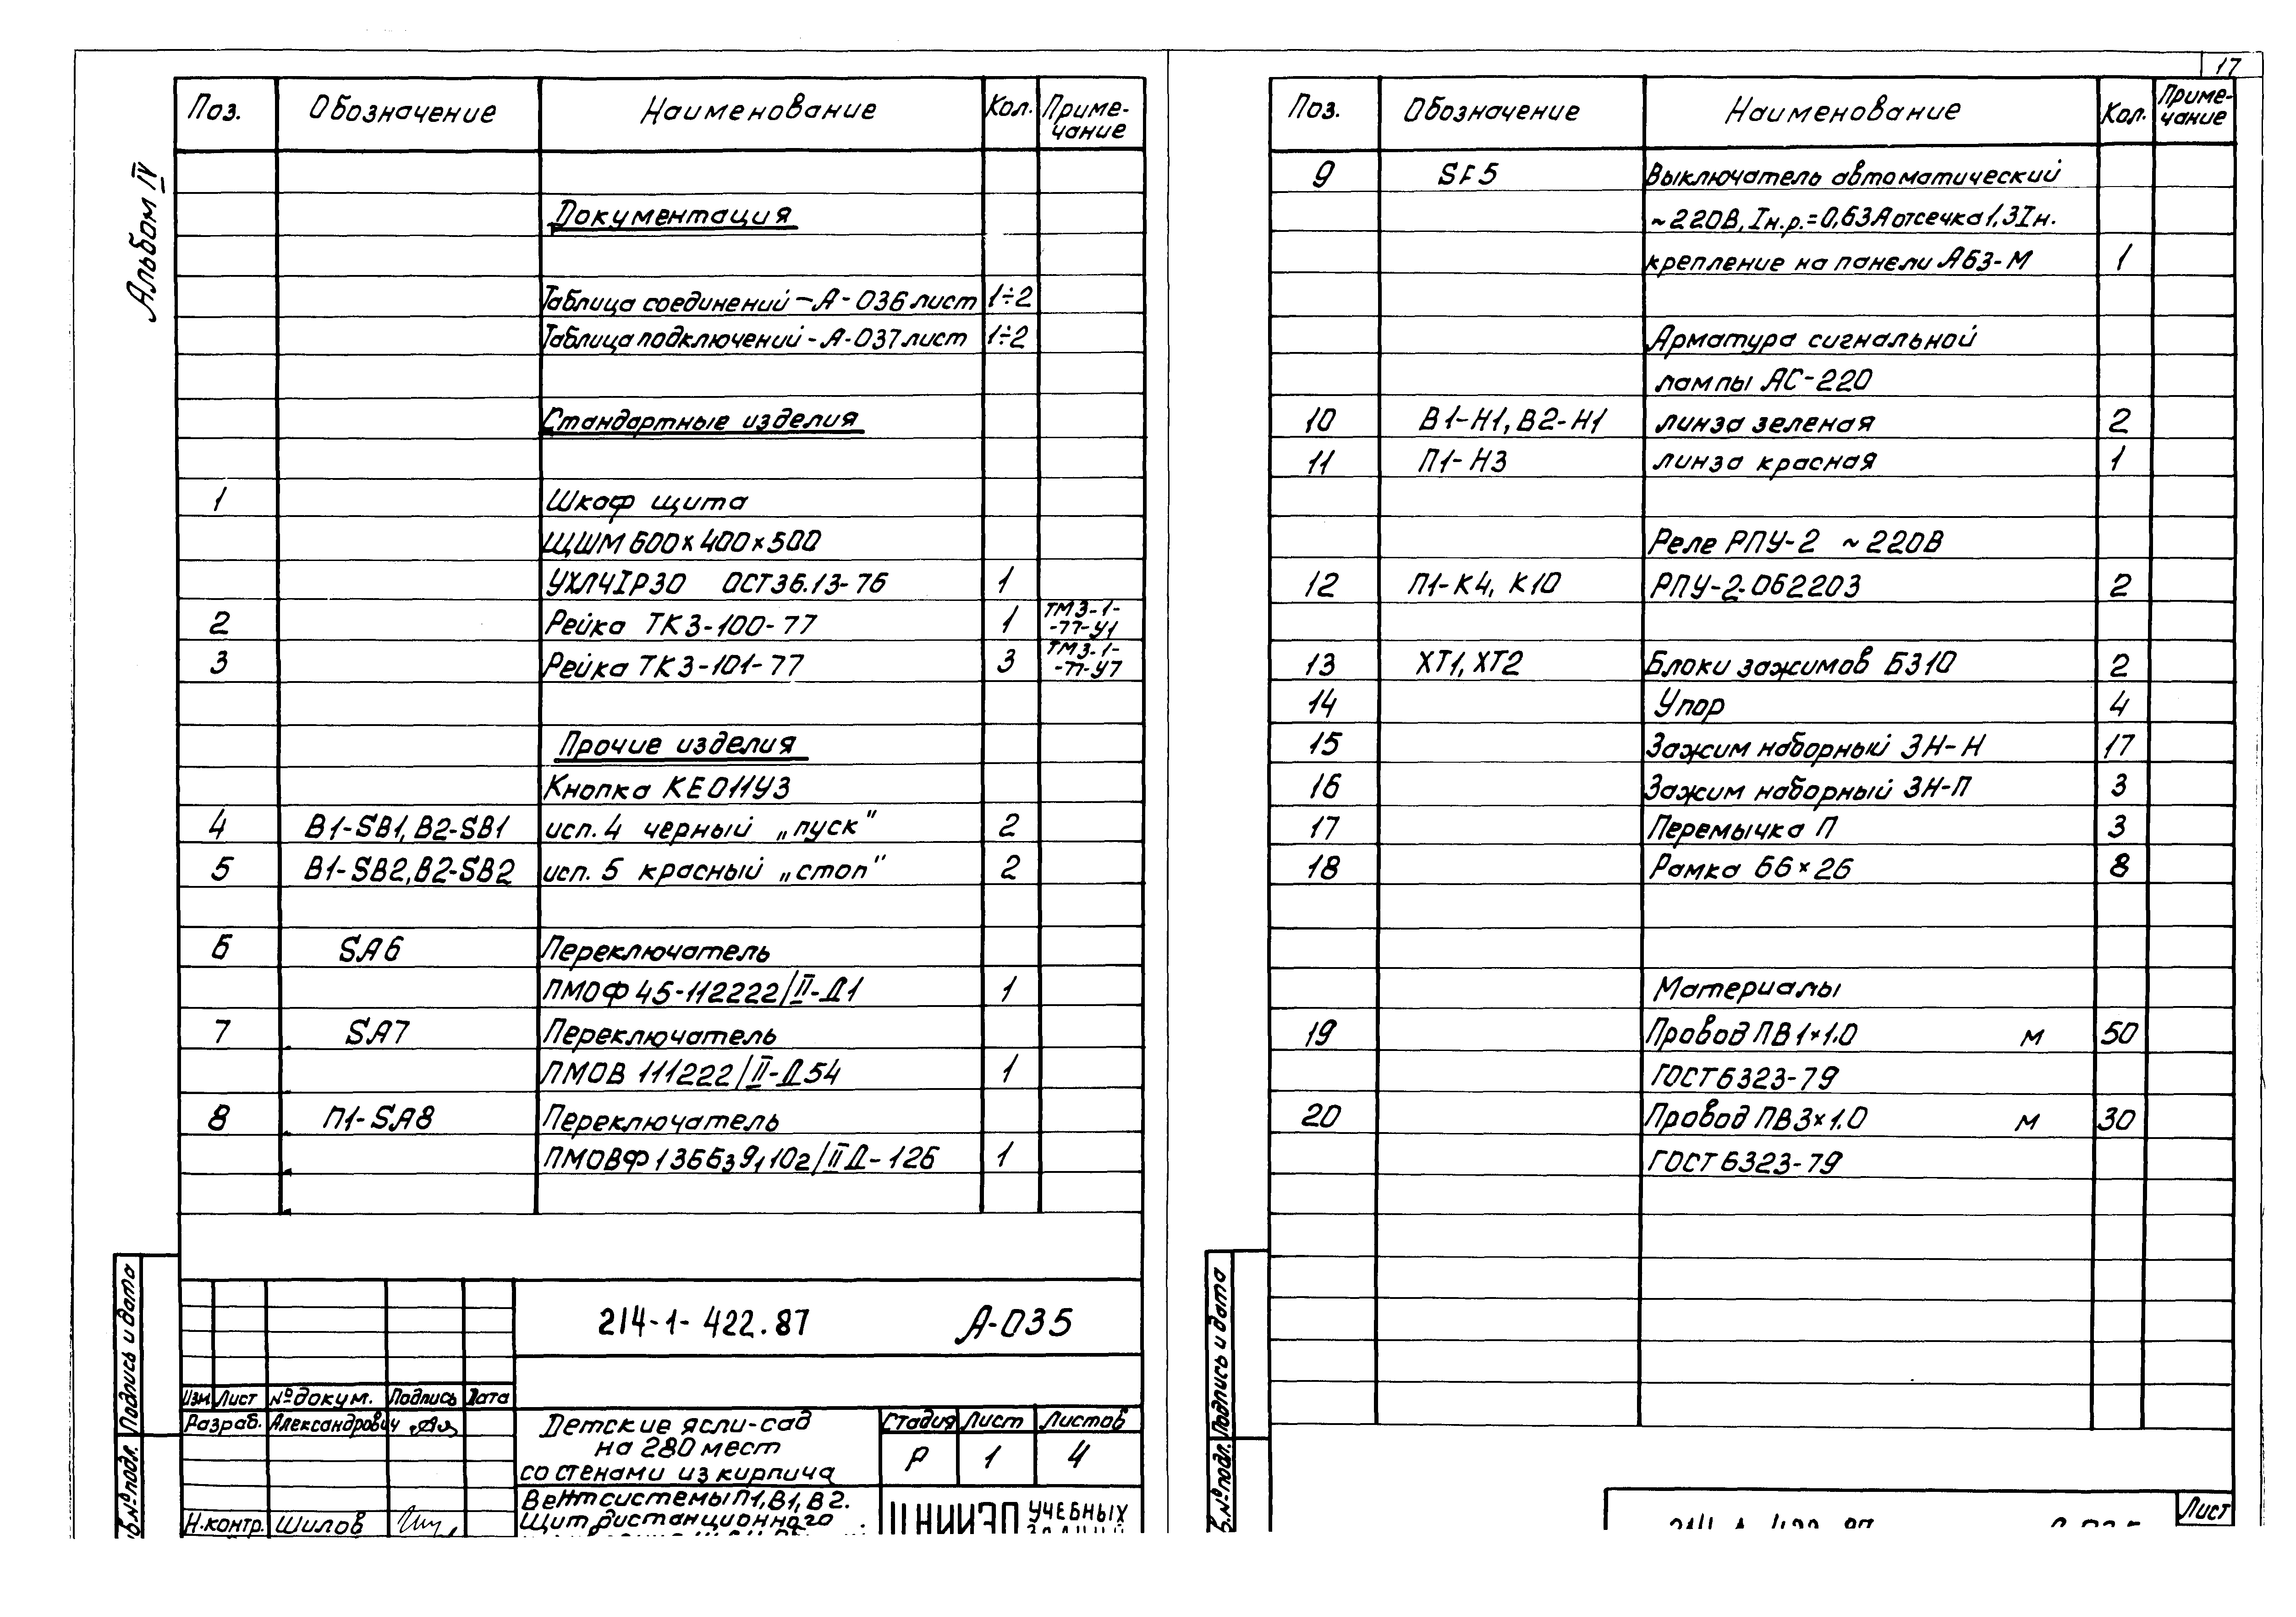 17
Альбом IV
Поз. Обозначение Наименование Кол. Приме-
чание
Документация
Таблица соединений – А-036 лист 1÷2
Таблица подключений – А-037 лист 1÷2
Стандартные изделия
1 Шкаф щита
ЩШМ 600×400×500
УХЛЧIP30 ОСТ36.13-76 1
2 Рейка ТК3-100-77 1 ТМ3-1-
-77-У1
3 Рейка ТК3-101-77 3 ТМ3-1-
-77-У7
Прочие изделия
Кнопка КЕ011У3
4 В1-SB1, В2-SB1 исп. 4 черный „пуск" 2
5 В1-SB2, В2-SB2 исп. 5 красный „стоп" 2
6 SA6 Переключатель
ПМОФ 45-112222/II-Д1 1
7 SA7 Переключатель
ПМОВ 111222/II-Д54 1
8 П1-SA8 Переключатель
ПМОВФ 1366₃9₁10₂/IIД-126 1
214-1-422.87 А-035
Изм Лист № докум. Подпись Дата
Разраб. Александрович
Детские ясли-сад
на 280 мест
со стенами из кирпича
Стадия Лист Листов
Р 1 4
Вентсистемы П1, В1, В2.
Щит дистанционного
Н.контр. Шилов
ЦНИИЭП УЧЕБНЫХ
Подпись и дата
№ подл.
Поз. Обозначение Наименование Кол. Приме-
чание
9 SF5 Выключатель автоматический
~220В, Iн.р.=0,63А отсечка 1,3Iн.
крепление на панели А63-М 1
Арматура сигнальной
лампы АС-220
10 В1-Н1, В2-Н1 линза зеленая 2
11 П1-Н3 линза красная 1
Реле РПУ-2 ~220В
12 П1-К4, К10 РПУ-2-062203 2
13 ХТ1, ХТ2 Блоки зажимов Б310 2
14 Упор 4
15 Зажим наборный ЗН-Н 17
16 Зажим наборный ЗН-П 3
17 Перемычка П 3
18 Рамка 66×26 8
Материалы
19 Провод ПВ 1×1.0 м 50
ГОСТ 6323-79
20 Провод ПВ 3×1.0 м 30
ГОСТ 6323-79
Подпись и дата
№ подл.
Лист